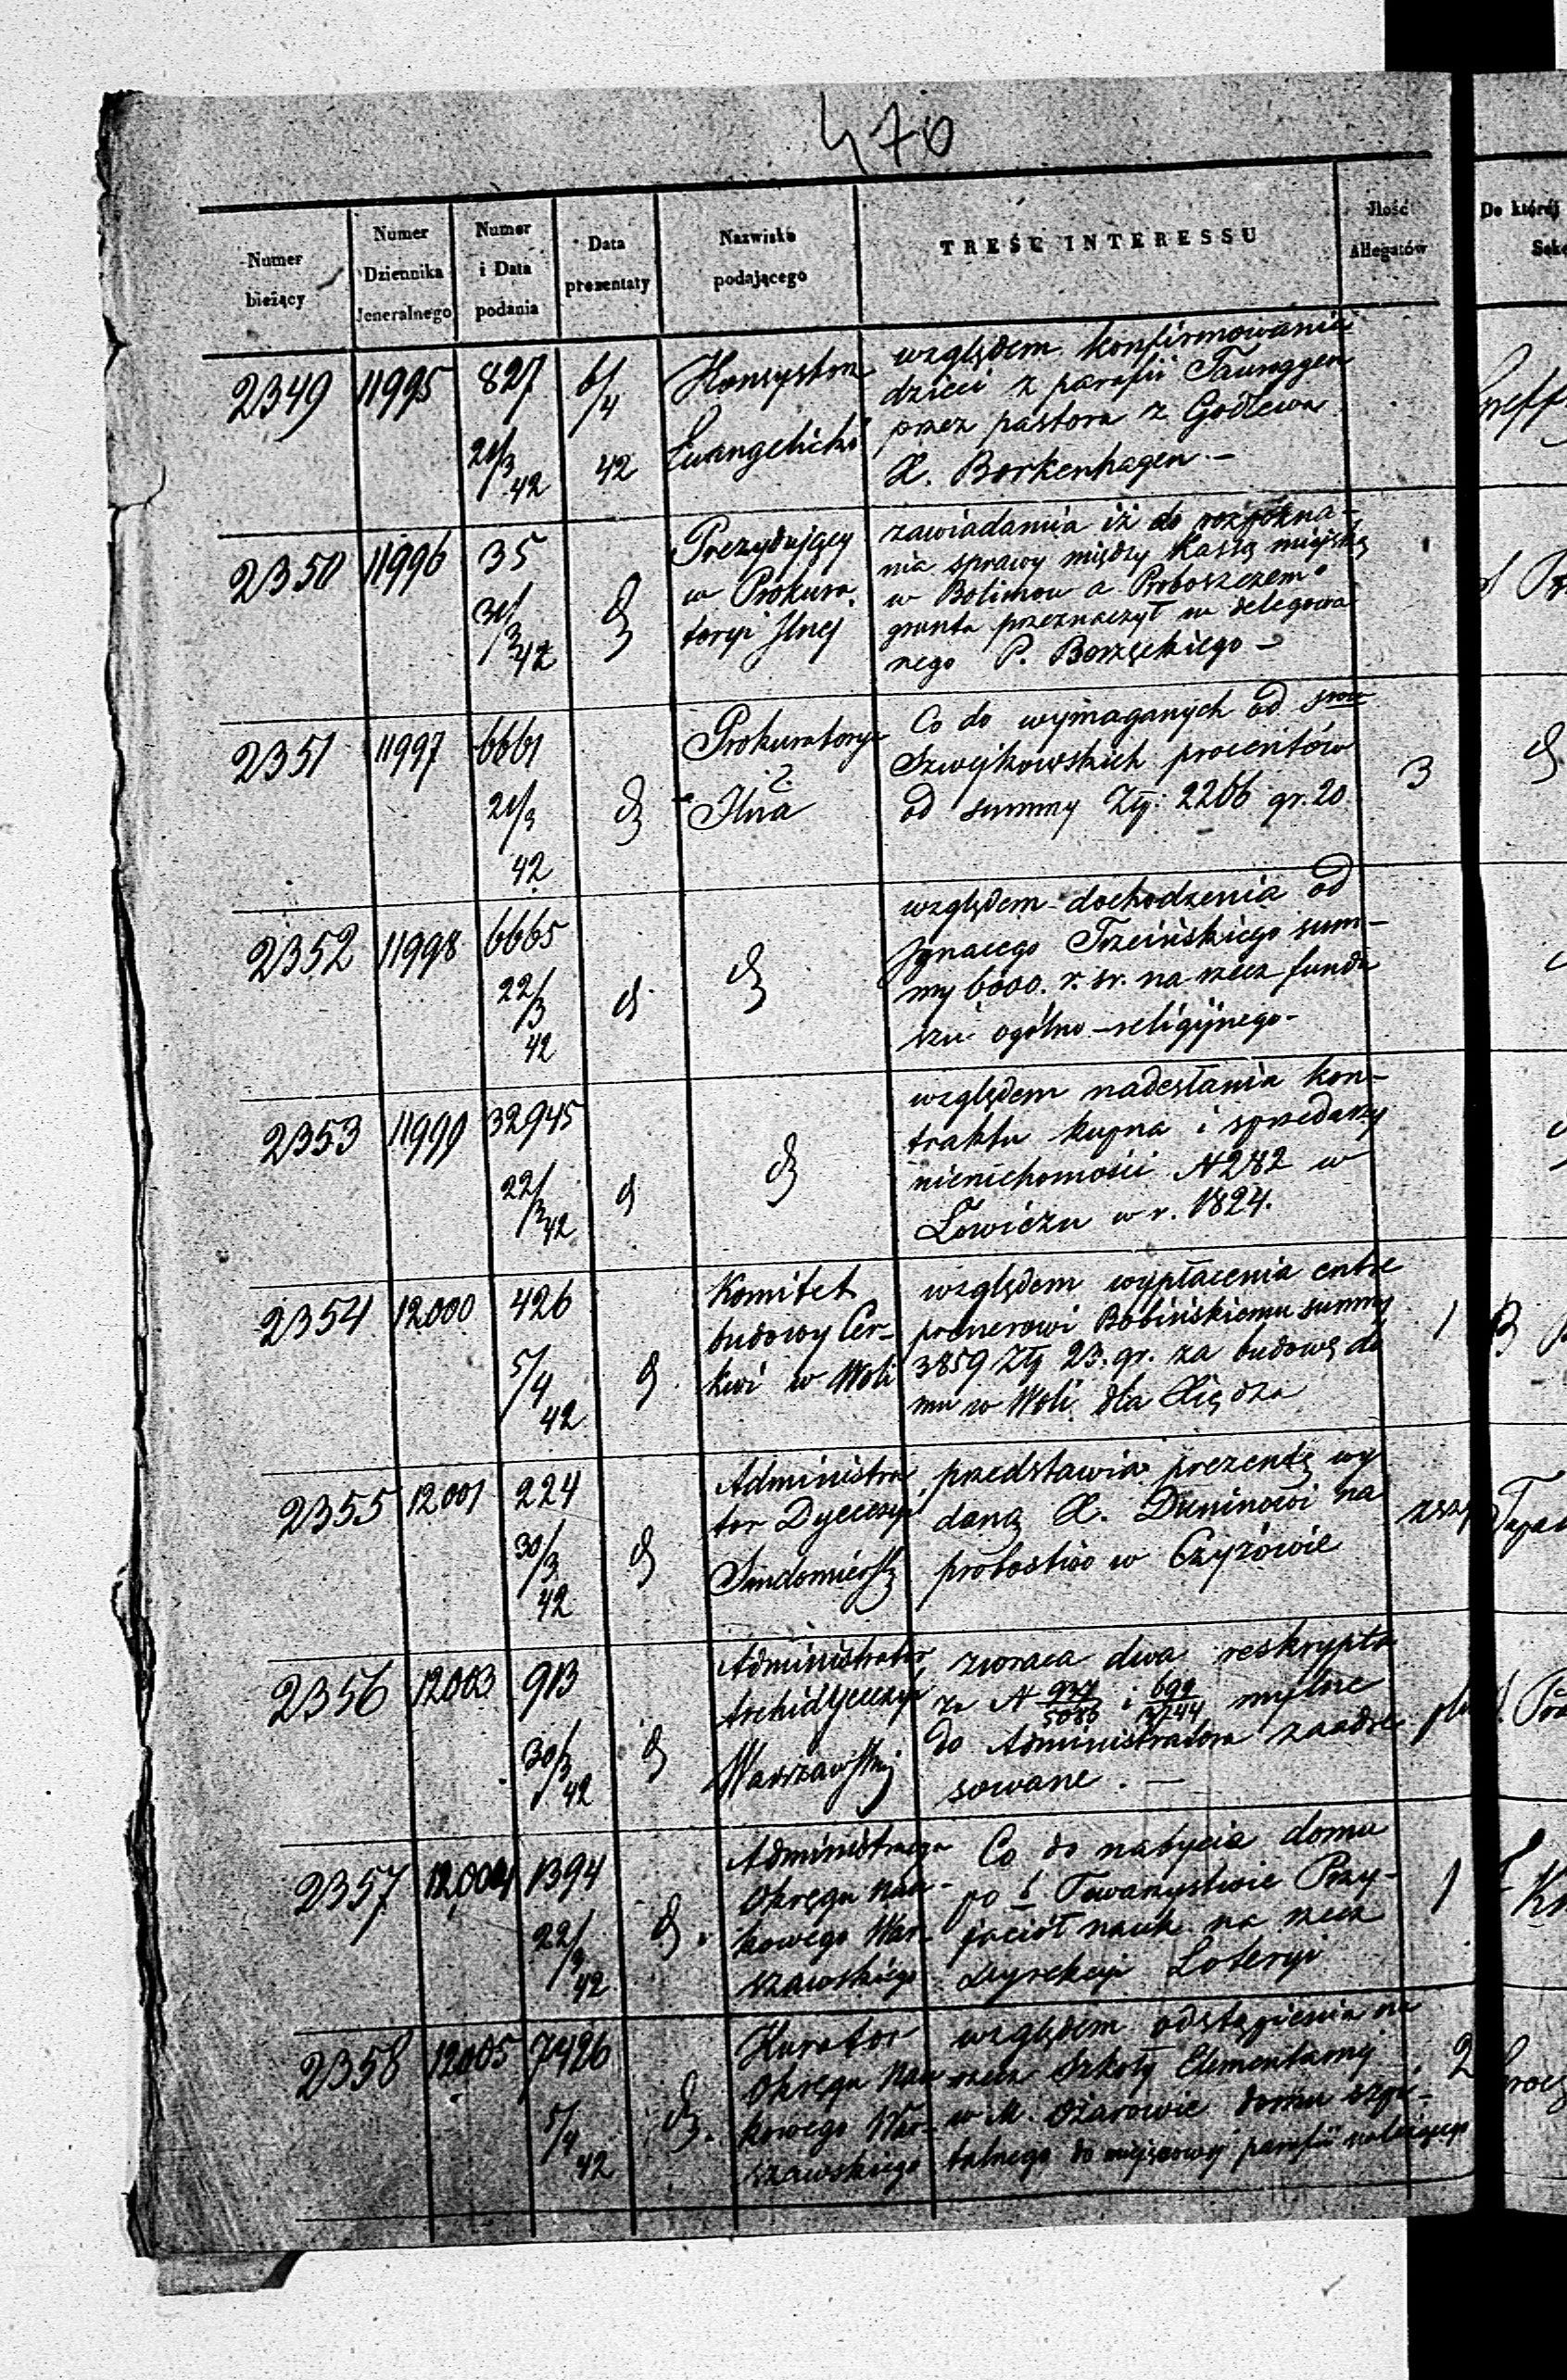 470
Numer bieżący
Numer Dziennika Jeneralnego
Numer i Data podania
Data prezentaty
Nazwisko podającego
TREŚĆ INTERESSU
Ilość Allegatów
Do której
2349 11995 827 21/3 42 6/4 42
Konsystorz
Ewangelicki
względem konfirmowania
dzieci z parafii Tauroggen
przez pastora z Godlewa
X. Borkenhagen.-
2350 11996 35 31/3 42 d
Prezydujący
w Prokura
toryi Jlnej
zawiadamia iż do rozpozna-
nia sprawy między Kassą miejską
w Bolimow a Proboszczem
grunta przeznaczył na delegowa
nego P. Borzęckiego -
2351 11997 6661 21/3 42 d
Prokuratorya
Jlna
Co do wymaganych od
Szwejkowskich procentów
od summy Złp: 2266 gr. 20
3 d
2352 11998 6665 22/3 42 d
d
względem dochodzenia od
Ignacego Trzcińskiego sum-
my 6000. r. sr. na rzecz fundu
szu ogólno-religijnego-
2353 11999 32945 22/3 42 d
d
względem nadesłania kon-
traktu kupna i sprzedaży
nieruchomości N 282 w
Łowiczu w r. 1824.
2354 12000 426 5/4 42 d
Komitet
budowy Cer-
kwi w Woli
względem wypłacenia entre
prenerowi Bobińskiemu summy
3859 Złp 23. gr. za budowę do
mu w Woli dla Xiędza
1
2355 12001 224 30/3 42 d
Administra
tor Dyecezyi
Sandomiersk
przedstawia prezentę wy
daną X. Duninowi na
probostwo w Czyżowie
2356 12003 913 30/3 42 d
Administrator
Archidyecezyi
Warszawskiej
zwraca dwa reskrypta
za N 937/5086 i 699/3744 mylnie
do Administratora zaadre
sowane. -
2357 12004 1394 22/3 42 d
Administracya
Okręgu Nau-
kowego War-
szawskiego
Co do nabycia domu
po b Towarzystwie Przy-
jaciół nauk na rzecz
Dyrekcyi Loteryi
1
2358 12005 7426 5/4 42 d.
Kurator
Okręgu Nau
kowego War-
szawskiego
względem odstąpienia na
rzecz Szkoły Elementarnej
w M. Ożarowie domu szpi-
talnego do miejscowej parafii należącego
2